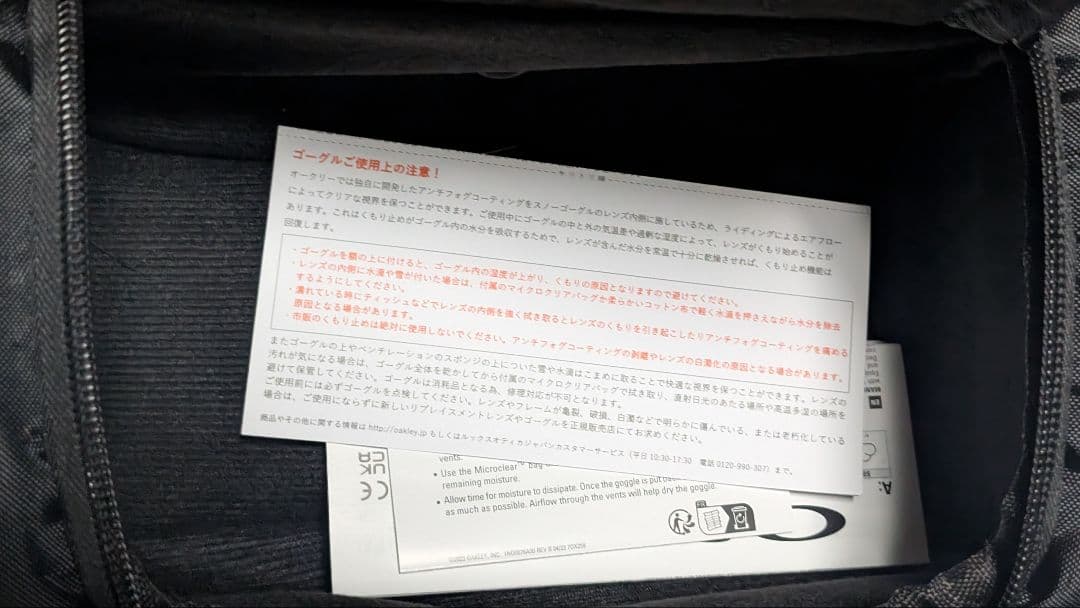 キリトリ線
ゴーグルご使用上の注意！
オークリーでは独自に開発したアンチフォグコーティングをスノーゴーグルのレンズ内側に施しているため、ライディングによるエアフロー
によってクリアな視界を保つことができます。ご使用中にゴーグルの中と外の気温差や過剰な湿度によって、レンズがくもり始めることが
あります。これはくもり止めがゴーグル内の水分を吸収するためで、レンズが含んだ水分を常温で十分に乾燥させれば、くもり止め機能は
回復します。
・ゴーグルを額の上に付けると、ゴーグル内の湿度が上がり、くもりの原因となりますので避けてください。
・レンズの内側に水滴や雪が付いた場合は、付属のマイクロクリアバッグか柔らかいコットン布で軽く水滴を押さえながら水分を除去
するようにしてください。
・濡れている時にティッシュなどでレンズの内側を強く拭き取るとレンズのくもりを引き起こしたりアンチフォグコーティングを痛める
原因となる場合があります。
・市販のくもり止めは絶対に使用しないでください。アンチフォグコーティングの剥離やレンズの白濁化の原因となる場合があります。
またゴーグルの上やベンチレーションのスポンジの上についた雪や水滴はこまめに取ることで快適な視界を保つことができます。レンズの
汚れが気になる場合は、ゴーグル全体を乾かしてから付属のマイクロクリアバッグで拭き取り、直射日光のあたる場所や高温多湿の場所を
避けて保管してください。ゴーグルは消耗品となる為、修理対応が不可となります。
ご使用前には必ずゴーグルを点検してください。レンズやフレームが亀裂、破損、白濁などで明らかに傷んでいる、または老朽化している
場合は、ご使用にならずに新しいリプレイスメントレンズやゴーグルを正規販売店にてお求めください。
商品やその他に関する情報は http://oakley.jp もしくはルックスオティカジャパンカスタマーサービス（平日 10:30-17:30　電話 0120-990-307）まで。
vents.
• Use the Microclear™ bag
remaining moisture.
• Allow time for moisture to dissipate. Once the goggle is put
as much as possible. Airflow through the vents will help dry the goggle.
UK
CA
CE
EN
A: